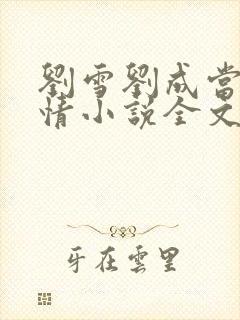 劉雪劉成當
情小說全文
牙在雲里